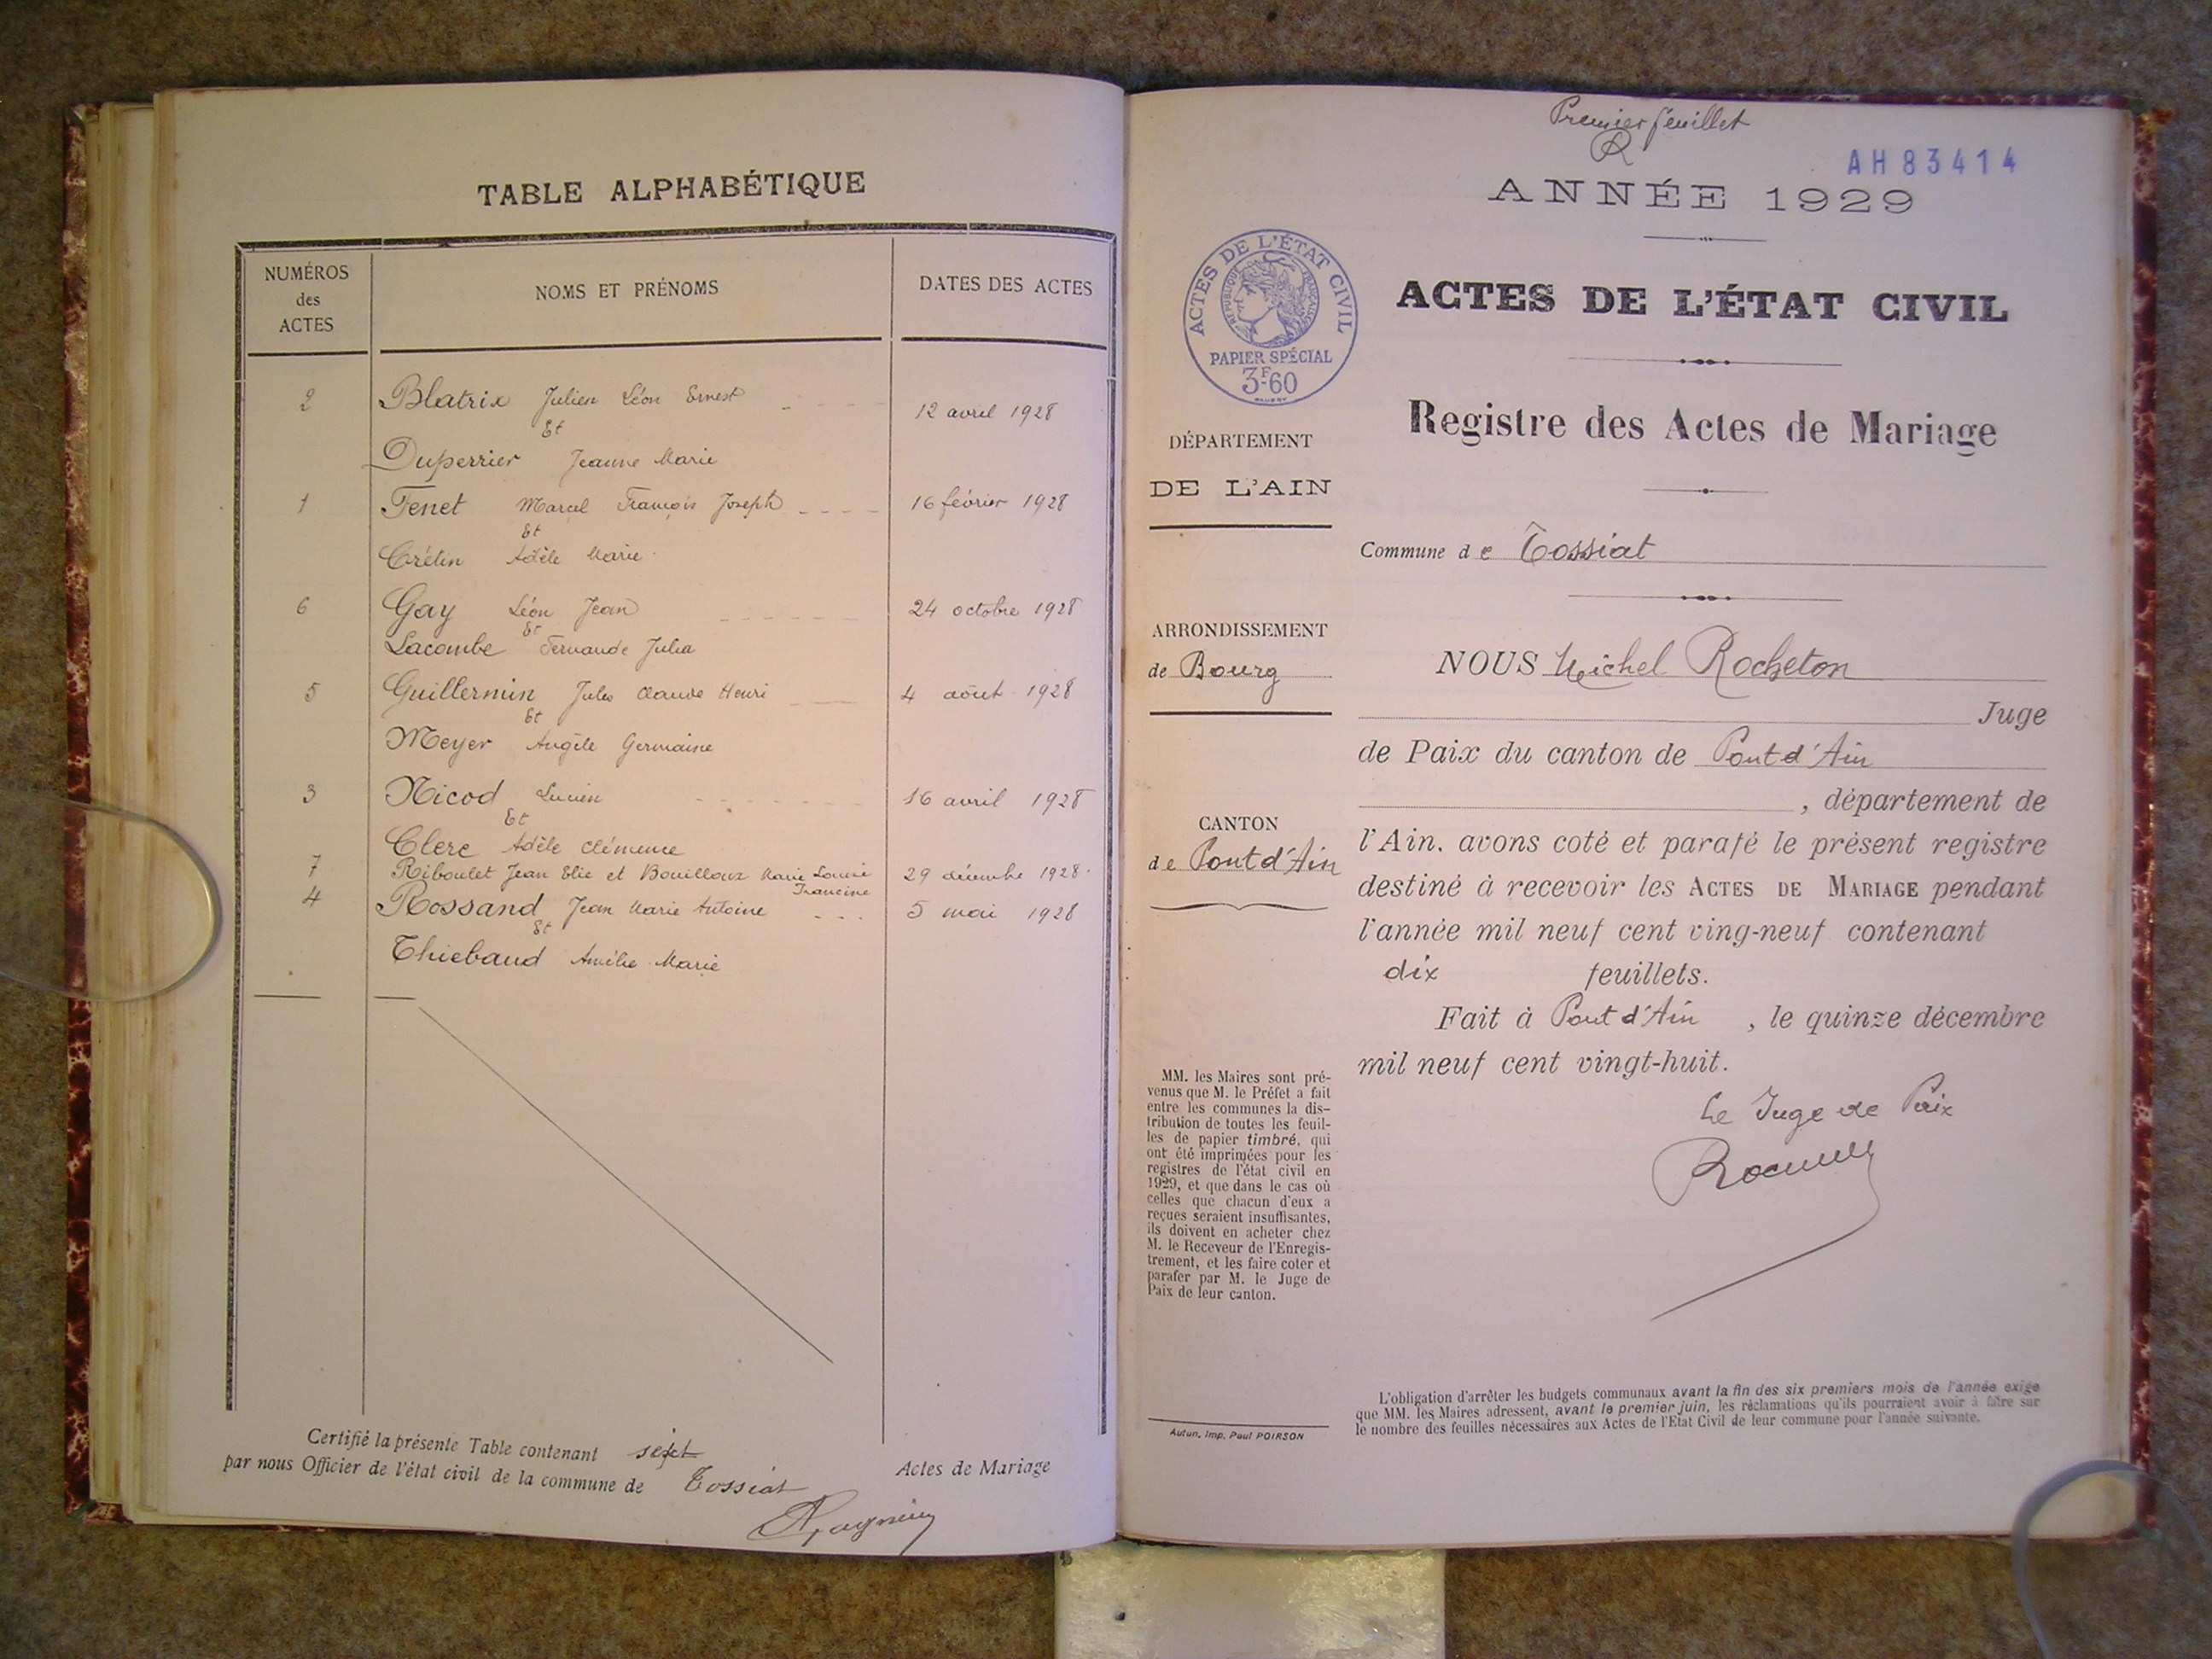 TABLE ALPHABÉTIQUE
NUMÉROS
des
ACTES
NOMS ET PRÉNOMS
DATES DES ACTES
2 Blatrix Julien Léon Ernest 12 avril 1928
Et
Duperrier Jeanne Marie
1 Fenet Marcel François Joseph 16 février 1928
Et
Crétin Adèle Marie
6 Gay Léon Jean 24 octobre 1928
Et
Lacombe Fernande Julia
5 Guillermin Jules Claude Henri 4 août 1928
Et
Meyer Angèle Germaine
3 Nicod Lucien 16 avril 1928
Et
Clerc Adèle Clémence
7 Riboulet Jean Elie et Bouilloux Marie Louise 29 décembre 1928.
Francine
4 Rossand Jean Marie Antoine 5 mai 1928
Et
Thiebaud Amélie Marie
Certifié la présente Table contenant sept Actes de Mariage
par nous Officier de l'état civil de la commune de Tossiat
Premier feuillet
R
AH83414
ANNÉE 1929
ACTES DE L'ÉTAT CIVIL
RÉPUBLIQUE FRANÇAISE
PAPIER SPÉCIAL
3F60
ACTES DE L'ÉTAT CIVIL
Registre des Actes de Mariage
DÉPARTEMENT
DE L'AIN
Commune de Tossiat
ARRONDISSEMENT
de Bourg
CANTON
de Pont d'Ain
NOUS Michel Rocheton
Juge
de Paix du canton de Pont d'Ain
, département de
l'Ain, avons coté et parafé le présent registre
destiné à recevoir les ACTES DE MARIAGE pendant
l'année mil neuf cent ving-neuf contenant
dix feuillets.
Fait à Pont d'Ain , le quinze décembre
mil neuf cent vingt-huit.
Le Juge de Paix
MM. les Maires sont pré-
venus que M. le Préfet a fait
entre les communes la dis-
tribution de toutes les feuil-
les de papier timbré, qui
ont été imprimées pour les
registres de l'état civil en
1929, et que dans le cas où
celles que chacun d'eux a
reçues seraient insuffisantes,
ils doivent en acheter chez
M. le Receveur de l'Enregis-
trement, et les faire coter et
parafer par M. le Juge de
Paix de leur canton.
Autun, Imp. Paul POIRSON
L'obligation d'arrêter les budgets communaux avant la fin des six premiers mois de l'année exige
que MM. les Maires adressent, avant le premier juin, les réclamations qu'ils pourraient avoir à faire sur
le nombre des feuilles nécessaires aux Actes de l'Etat Civil de leur commune pour l'année suivante.